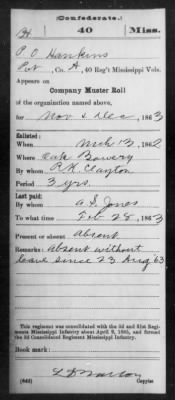 (Confederate.)
H 40 Miss.
P O Hankins
Pvt, Co. A, 40 Reg't Mississippi Vols.
Appears on
Company Muster Roll
of the organization named above,
for Nov & Dec, 1863
Enlisted:
When Mch 13, 1862
Where Oak Bowery
By whom P.K. Clayton
Period 3 yrs.
Last paid:
By whom A.S. Jones
To what time Feb 28, 1863
Present or absent Absent
Remarks: Absent without
leave since 23 Aug 63
This regiment was consolidated with the 3d and 31st Regiments
Mississippi Infantry about April 9, 1865, and formed
the 3d Consolidated Regiment Mississippi Infantry.
Book mark:
(642)
Copyist.